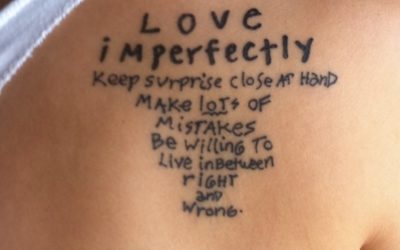 LOVE
imperfectly
Keep surprise close at Hand
Make lots of
Mistakes
Be willing to
Live inBetween
right
and
wrong.